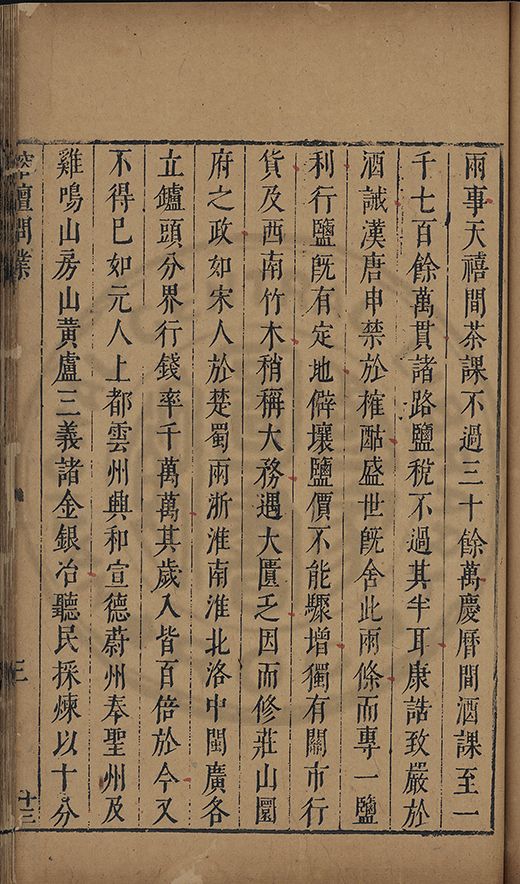 兩事天禧間茶課不過三十餘萬慶曆間酒課至一
千七百餘萬貫諸路鹽稅不過其半耳康誥致嚴於
酒誡漢唐申禁於榷酤盛世旣舍此兩條而專一鹽
利行鹽旣有定地僻壤鹽價不能驟增獨有關市行
貨及西南竹木稍稱大務遇大匱乏因而修莊山圜
府之政如宋人於楚蜀兩浙淮南淮北洛中閩廣各
立鑪頭分界行錢率千萬萬其歲入皆百倍於今又
不得已如元人上都雲州興和宣德蔚州奉聖州及
雞鳴山房山黃盧三義諸金銀冶聽民採煉以十分
榕壇問業
三
十三